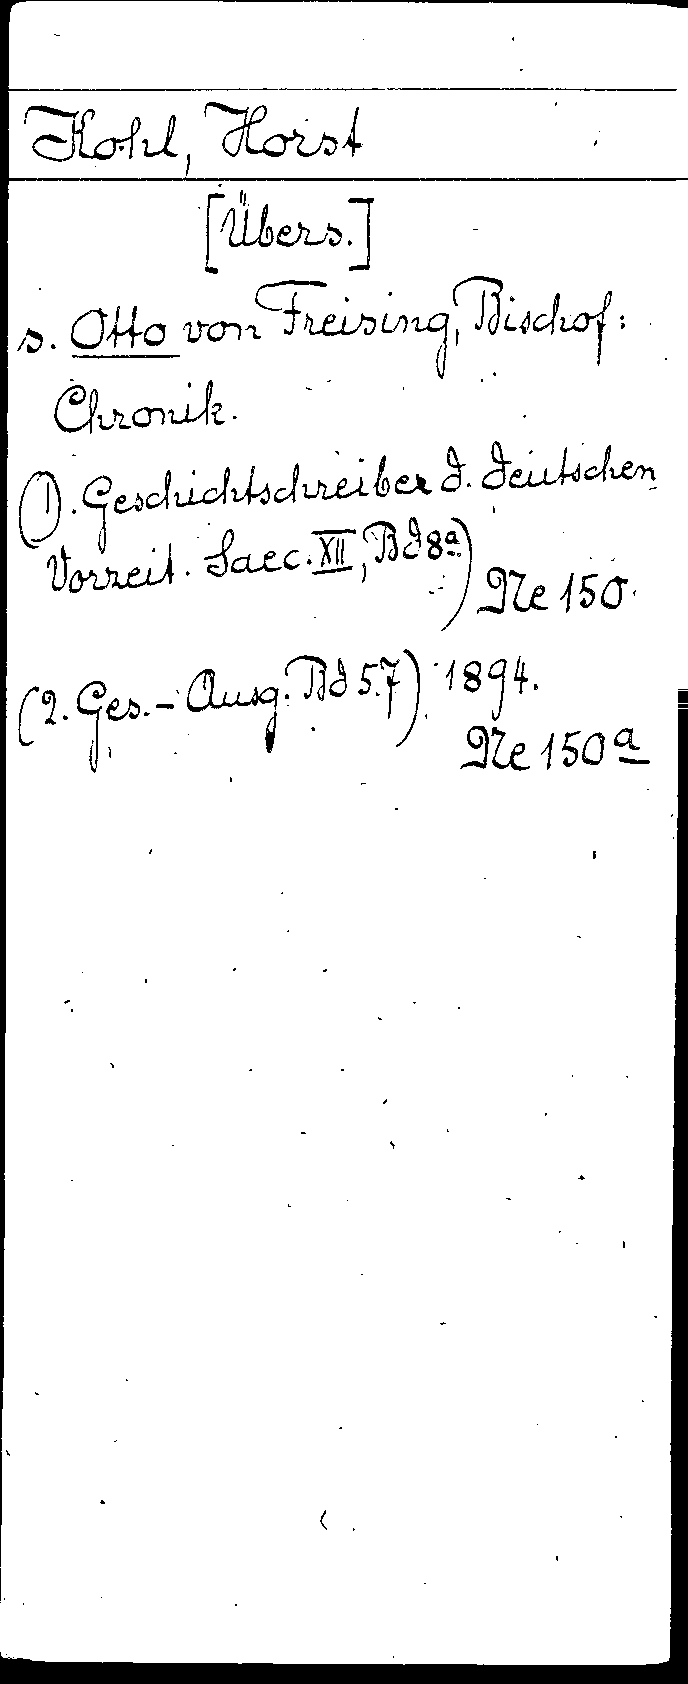 Kohl, Horst
[Übers.]
s. Otto von Freising, Bischof:
Chronik.
(1). Geschichtschreiber d. deutschen
Vorzeit. Saec. XII, Bd 8a.)
Ne 150.
(2. Ges.-Ausg. Bd 57) 1894.
Ne 150a